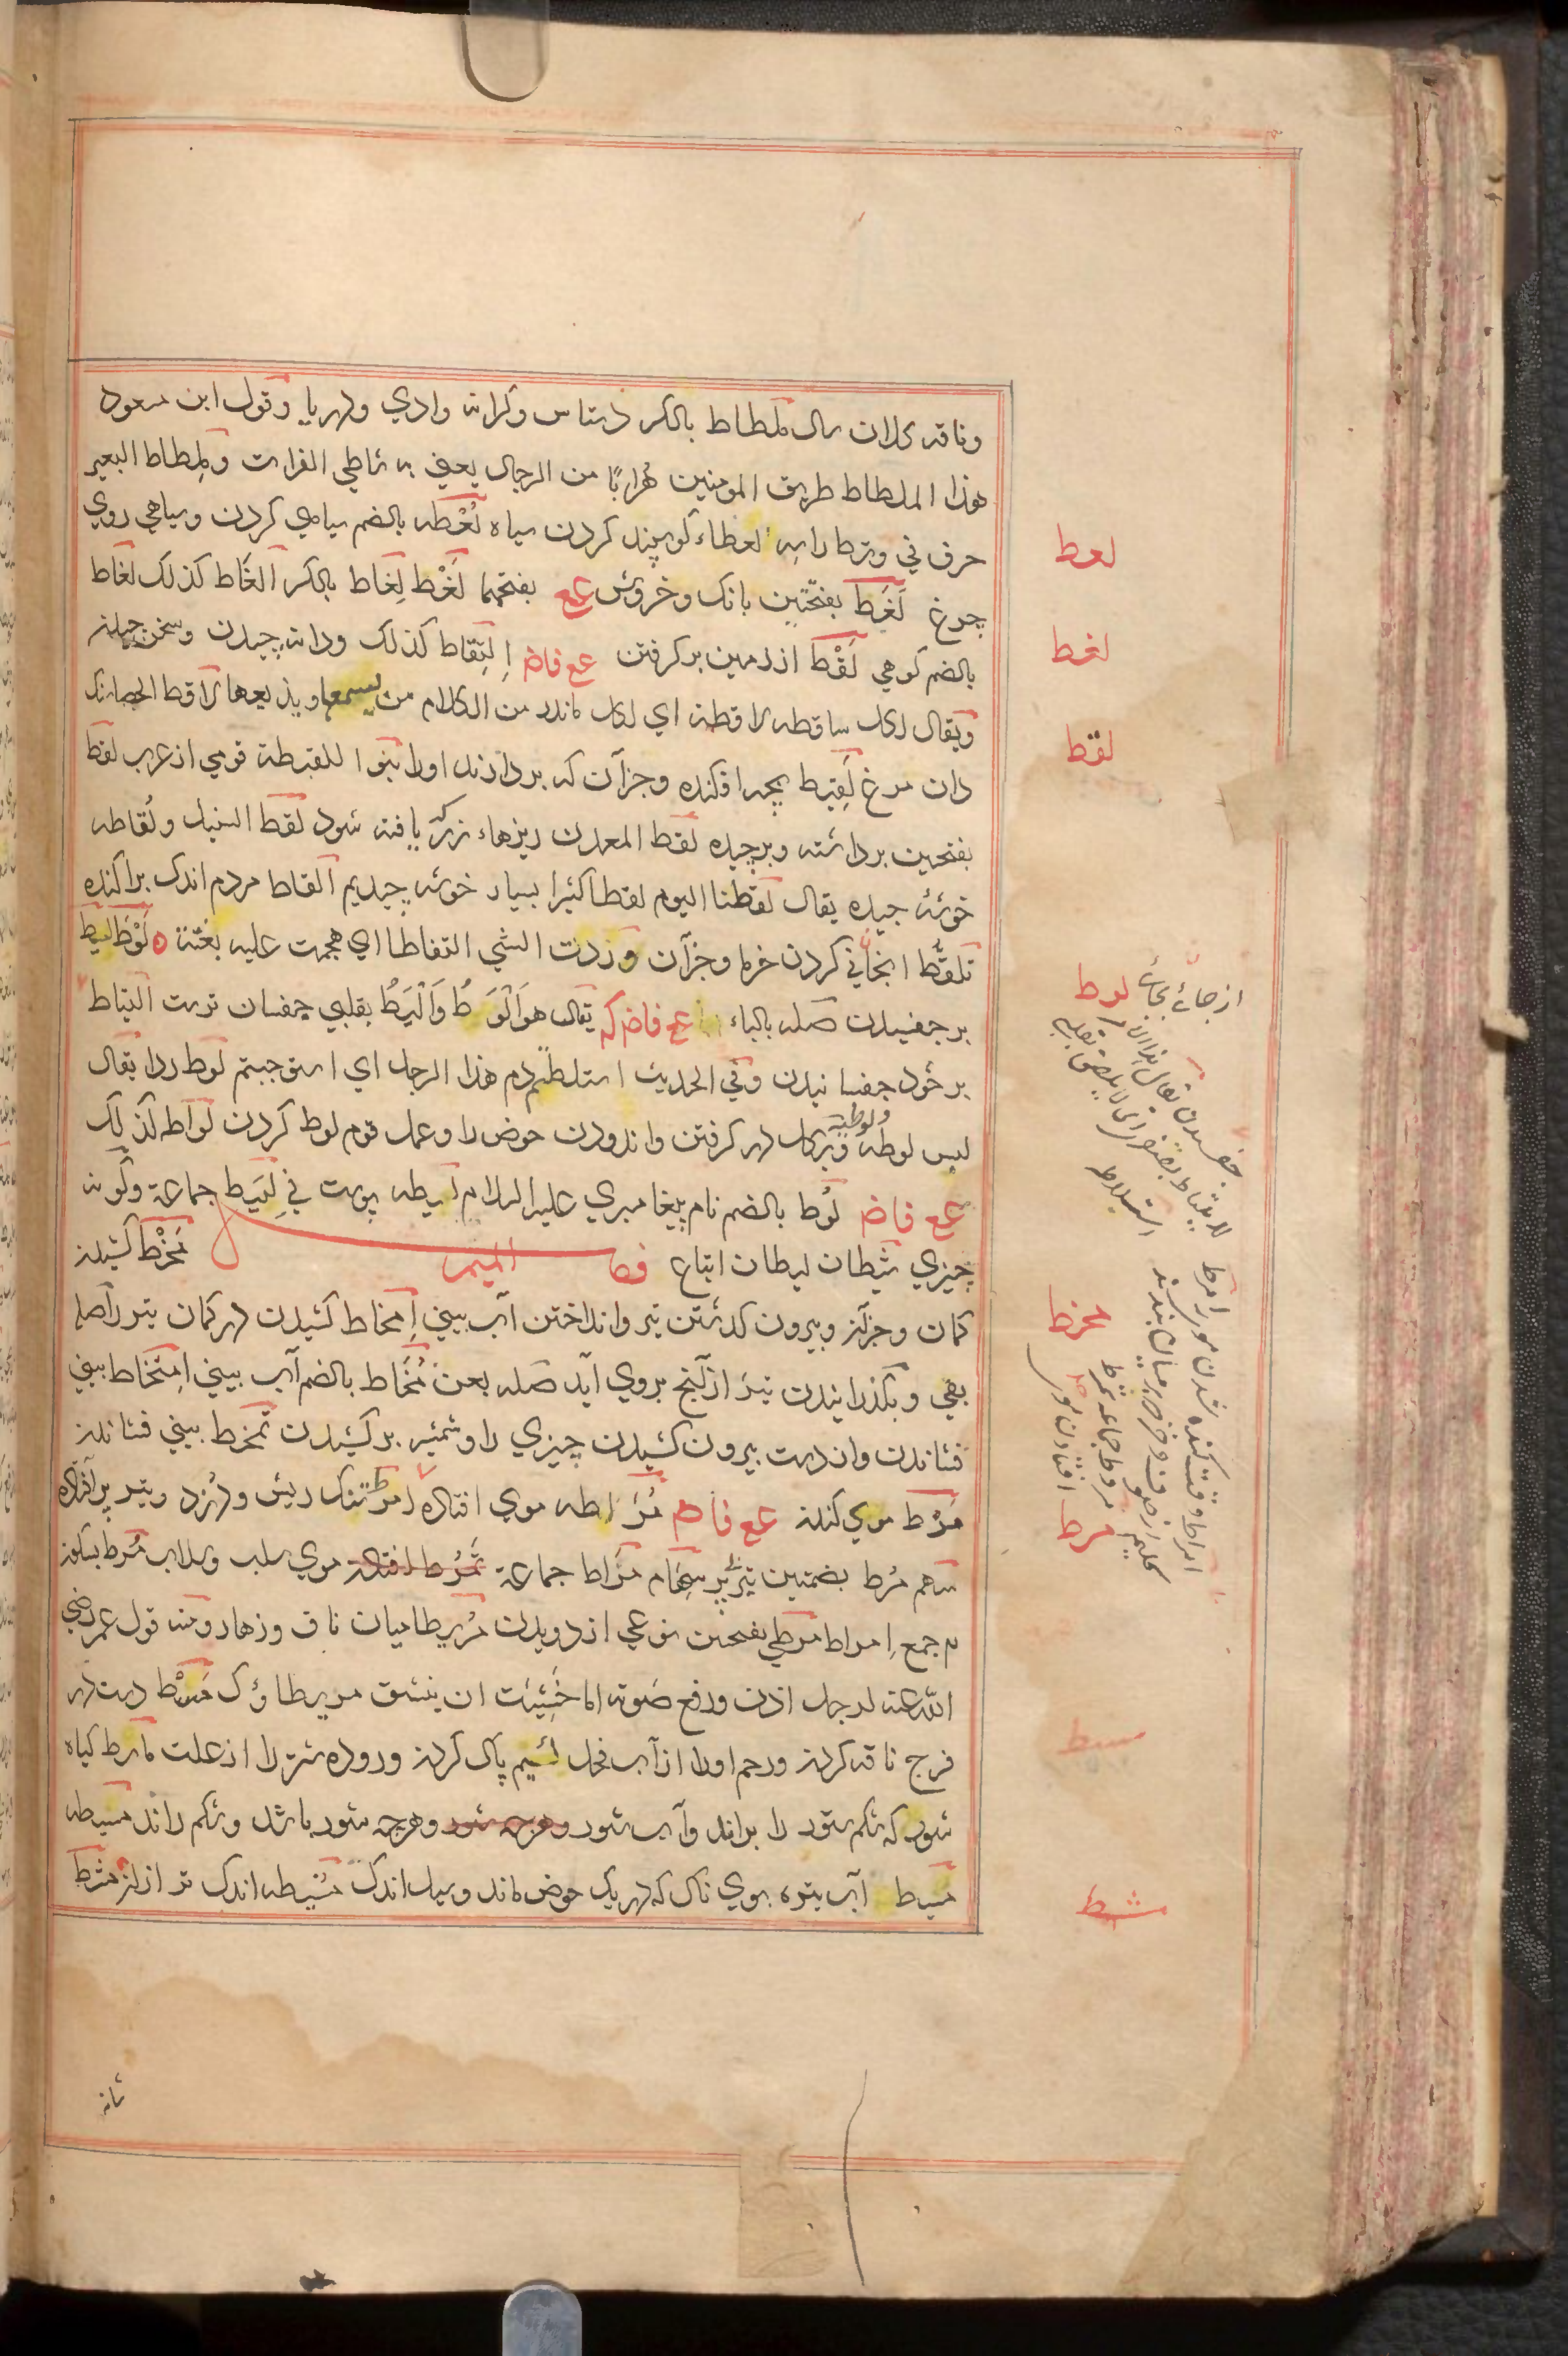 وناقه کلان سال ملطاط بالکسر دستاس وکرانه وادي ودريا وقول ابن مسعود
هذا الملطاط طريق المومنين هرابًا من الدجال يعني به شاطي الفرات وملطاط البعير
حرف في وسط راسه لعطاء کوسپند کردن سياه لُعْطه بالضم سياهي کردن وسياهي روي
چرغ لَغَط بفتحتين بانک وخروش عع بفتحهما لَغْط لِغاط بالکسر الغاط کذلک لغاط
بالضم کوهي لَقْط از زمين برکرفتن عع فاض اِلتِقاط کذلک ودانه چيدن وسخن چيدن
ويقال لکل ساقطه لاقطة اي لکل ماندر من الکلام من يسمعها ويذيعها لاقط الحصا سنک
دان مرغ لَقِيط بچه افکنده وجزآن که بردارند اورا بنوا للقيطة قومي از عرب لقط
بفتحتين برداشته وبرچيده لقط المعدن ريزهاء زرکه يافته شود لقط السنبل ولُقاطه
خوشه چيده يقال لقطنا اليوم لقطا کثيرا بسيار خوشه چيديم القاط مردم اندک پراکنده
تلقُّط انجاني کردن خرما وجزآن وردت الشي التقاطا اي هجمت عليه بغتة لَوْط لَيط
برچفسيدن صله بالباء عع فاض که يقال هو اَلْوَطُ وَاَلْيَطُ بقلبي چفسان تر است التياط
برخود چفسانيدن وفي الحديث استلطتم دم هذا الرجل اي استوجبتم لوط ردا يقال
لبس لوطه ولوطيه وبرکل در کرفتن واندودن حوض را وعمل قوم لوط کردن لواطه کذلک
عع فاض لُوط بالضم نام پيغامبري عليه السلام ليطه پوست ني لِيَط جماعة وکونه
چيزي شيطان ليطان اتباع فصل الميم مَخْط کشيدن
کمان وجزآن وبيرون کذشتن تير وانداختن آب بيني اِمخاط کشيدن در کمان تير را صله
بفي وبکذرانيدن تير از آنچ بروي آيد صله بعن مُخَاط بالضم آب بيني اِمتِخاط بيني
فشاندن واز دست بيرون کشيدن چيزي را وشمشير برکشيدن تمخط بيني فشاندن
مَرْط موي کندن عع فاض مُرَاطه موي افتاده امرط تنک ريش ودزد وتير پر افتاده
سهم مُرُط بضمتين تير بي پر سهام مِرَاط جماعة تَمَرُّط افتادن موي سلب وسلاب مُرط بسکون
را جمع اِمراط مرطي بفتحتين نوعي از دويدن مُرَيطا ميان ناف وزهار ومنه قول عمر رضي
الله عنه لرجل اذن ورفع صوته اما خَشِيتَ ان ينشق مريطاؤک مَسْط دست در
فرج ناقه کردن ورحم اورا از آب فحل لئيم پاک کردن وروده شتر را از علت ماسط کياه
شور که شکم ستور را براند وآب شور وهرچه شور وهرچه شور باشد وشکم راند مسيطه
مسيط آب تيره بوي ناک که در يک حوض ماند وسيل اندک مُسَيطه اندک تر ازان مشط
لعط
لغط
لقط
لوط
از جائے بجائے
مخط
مرط
مسط
مشط
شانه